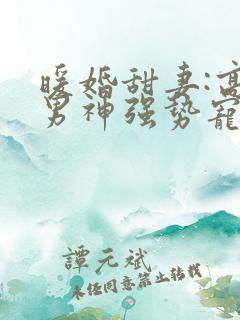 暖婚甜妻:高
男神强势宠
譚元斌
未经同意禁止转载